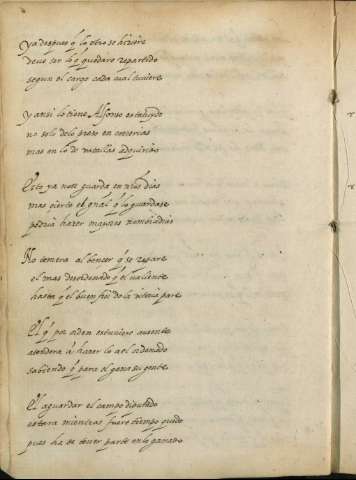 ya despues q̃ lo otro se hiziere
deve ser lo q̃ quedare repartido
segun el cargo cada cual tuviere
y ansi lo tiene Alfonso establecido
no solo delo preso en correrias
mas en lo de vatallas adquirido
Esto ya no se guarda en nr̃os dias
mas cierto el q̃ lo guardase
podria hazer mayores
No temera al bencer q̃ se repare
el mas desordenado q̃ el valiente
hasta q̃ el buen fin de la vitoria pare
El q̃ por orden estuviere ausente
atendera á hazer lo a el ordenado
sabiendo q̃ para el gana su gente
El aguardar el campo diputado
estara mientras fuere tiempo quedo
pues ha de tener parte en lo ganado